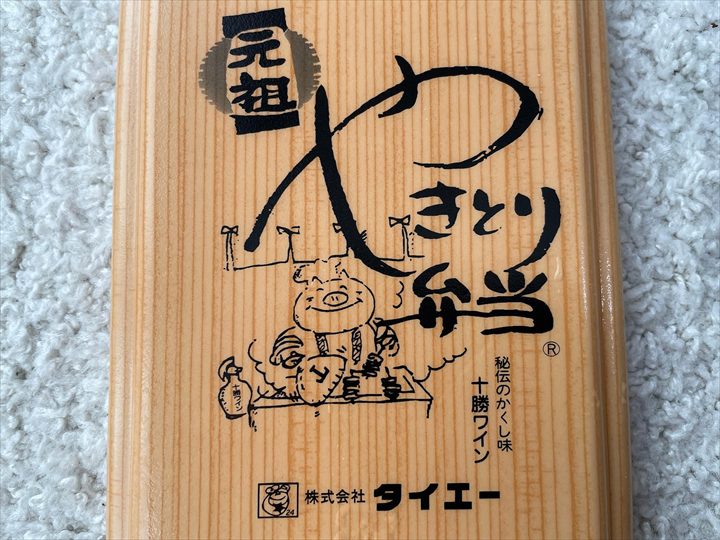 元祖
やきとり
弁当
®
秘伝のかくし味
十勝ワイン
十勝ワイン
エ
24
株式会社 タイエー